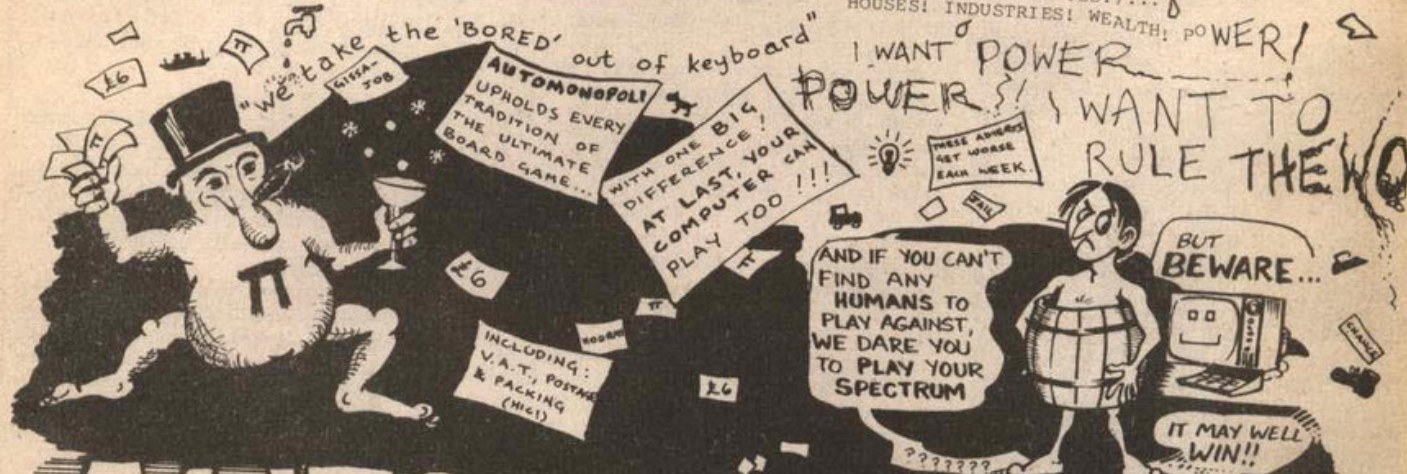 "we take the 'BORED' out of keyboard"
HOUSES! INDUSTRIES! WEALTH! POWER!
I WANT POWER
POWER!! I WANT TO
RULE THE WO
£6
π
GISSA-
JOB
AUTOMONOPOLI
UPHOLDS EVERY
TRADITION OF
THE ULTIMATE
BOARD GAME...
WITH ONE BIG
DIFFERENCE!
AT LAST, YOUR
COMPUTER CAN
PLAY TOO!!!
THESE ADVERTS
GET WORSE
EACH WEEK.
JAIL
π
π
£6
π
π
HOORAH
INCLUDING:
V.A.T., POSTAGE
& PACKING
(HIC!)
£6
AND IF YOU CAN'T
FIND ANY
HUMANS TO
PLAY AGAINST,
WE DARE YOU
TO PLAY YOUR
SPECTRUM
???????
BUT
BEWARE...
CHANCE
IT MAY WELL
WIN!!